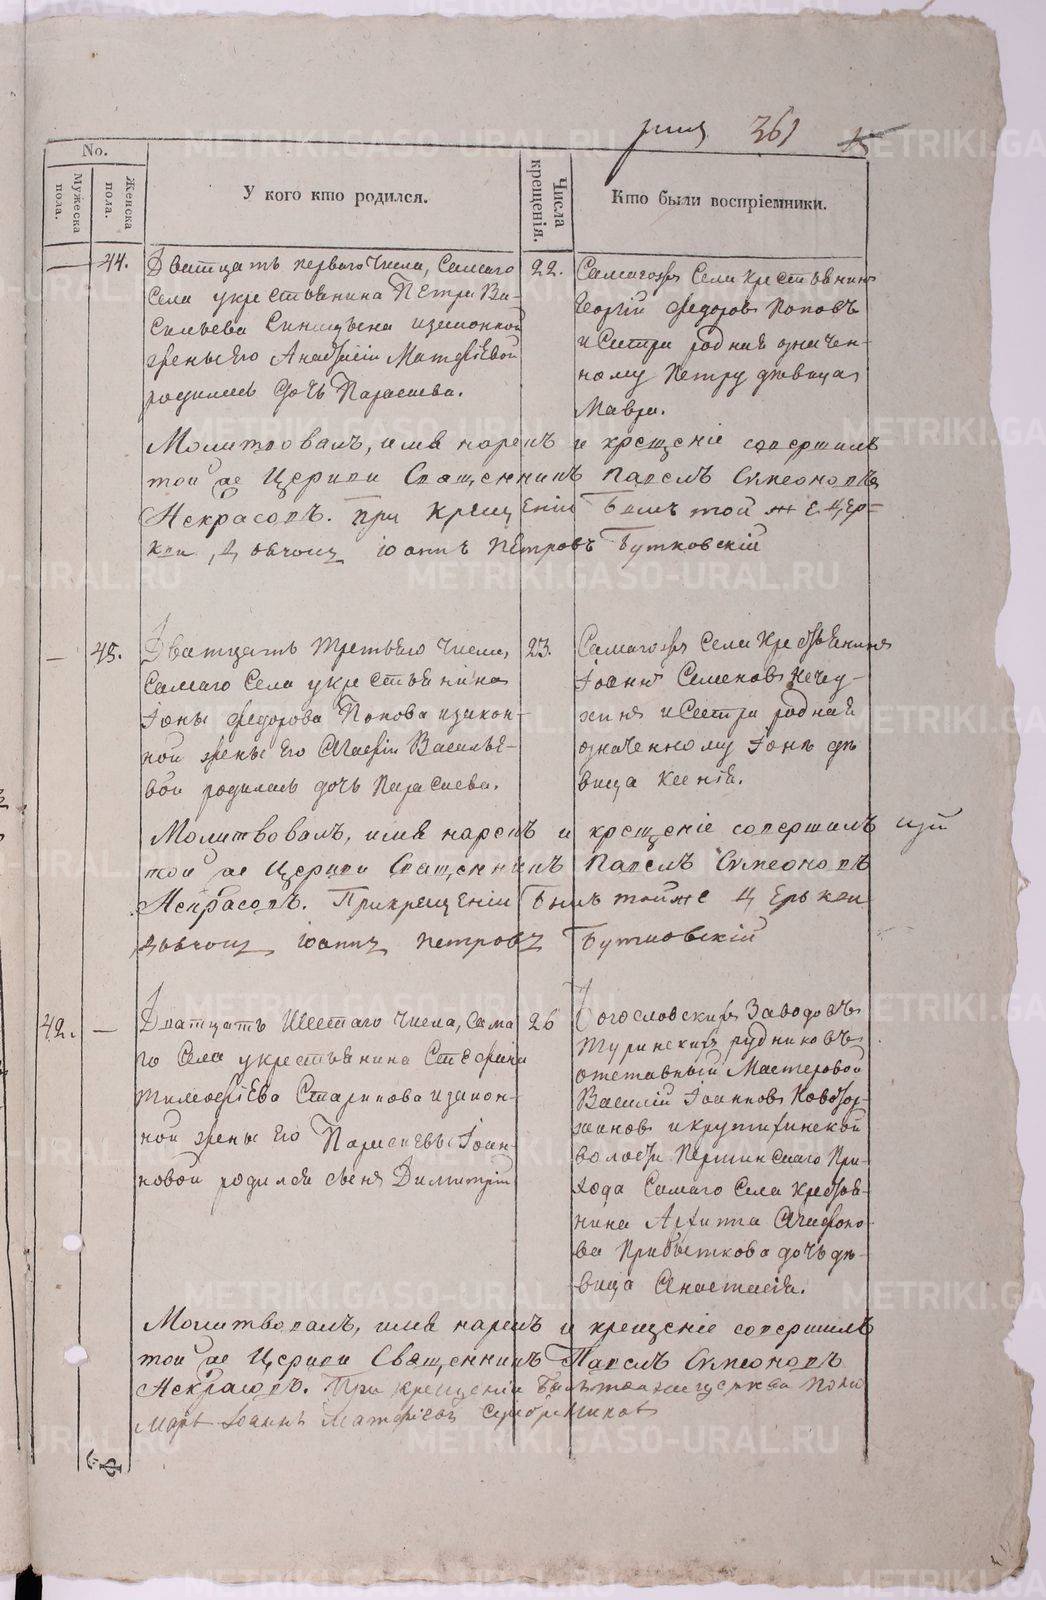 361 15
No.
Мужеска пола.
Женска пола.
У кого кто родился.
Числа крещенія.
Кто были воспріемники.
— 44. Дватцать перваго числа, самаго
села у крестьянина Петра Ва-
сильева Синицына изаконной
жены его Матфіевой
родилась дочь Параскева.
22.
Самагожъ села крестьянинъ
Георгій Федоровъ Поповъ
и сестра родная означен-
ному Петру дѣвица
Мавра.
Молитвовалъ, имя нарекъ и крещеніе совершилъ
той же Церкви Священникъ Павелъ Симеоновъ
Некрасовъ. При крещеніи былъ той же Цер-
кви, Дьячокъ Іоаннъ Петровъ Бутковскій
— 45. Дватцать третьяго числа,
самаго села у крестьянина
Іоны Федорова Попова изакон-
ной жены его Агафіи Василье-
вой родилась дочь Параскева.
23.
Самагожъ села крестьянинъ
Іоаннъ Семеновъ Нечеу-
хинъ и сестра родная
означенному Іонѣ дѣ
вица Ксенія.
Молитвовалъ, имя нарекъ и крещеніе совершилъ
той же Церкви Священникъ Павелъ Симеоновъ
Некрасовъ. При крещеніи былъ тойже Церькви
Дьячокъ Іоаннъ Петровъ Бутковскій
42. — Дватцать шестаго числа, сама
го села у крестьянина Стефана
Тимофіева Старикова изакон-
ной жены его Параскевы Іоан-
новой родился сынъ Димитрій
26
Богословскихъ Заводовъ
Туринскихъ рудниковъ
отставный Мастеровой
Василій Іоанновъ
и крутихинской
волости Першинскаго При-
хода самаго села крестья-
нина Архипа Агафоно-
ва Прибыткова дочь дѣ-
вица Анастасія.
Молитвовалъ, имя нарекъ и крещеніе совершилъ
той же Церкви Священникъ Павелъ Симеоновъ
Некрасовъ. При крещеніи былъ тояже церкви Поно
марь Іоаннъ Матфіевъ Серебрениковъ
METRIKI.GASO-URAL.RU